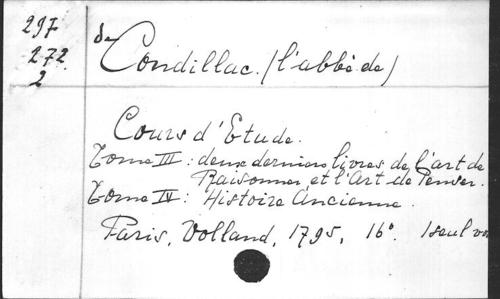 297
272
2
de
Condillac. (l'abbé de)
Cours d'Etude.
Tome III : deux derniers livres de l'art de
Raisonner, et l'Art de Penser.
Tome IV : Histoire Ancienne.
Paris, Volland, 1795, 16°. 1 seul vo